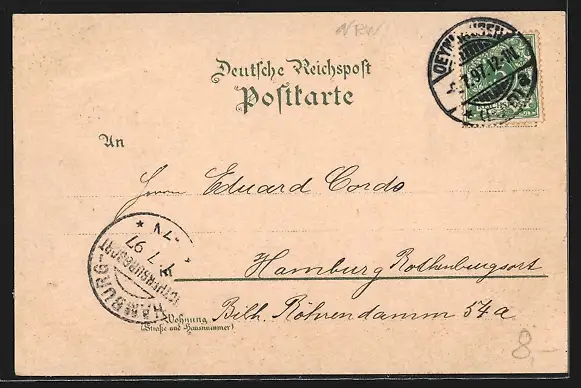 NRW
Deutsche Reichspost
Postkarte
OEYNHAUSEN
7.97.12-1N.
An
Herrn Eduard Cordo
Hamburg Rothenburgsort
HAMBURG-
ROTHENBURGSORT
7.97
7-
Wohnung
(Straße und Hausnummer)
Billh. Röhrendamm 54a
8,-